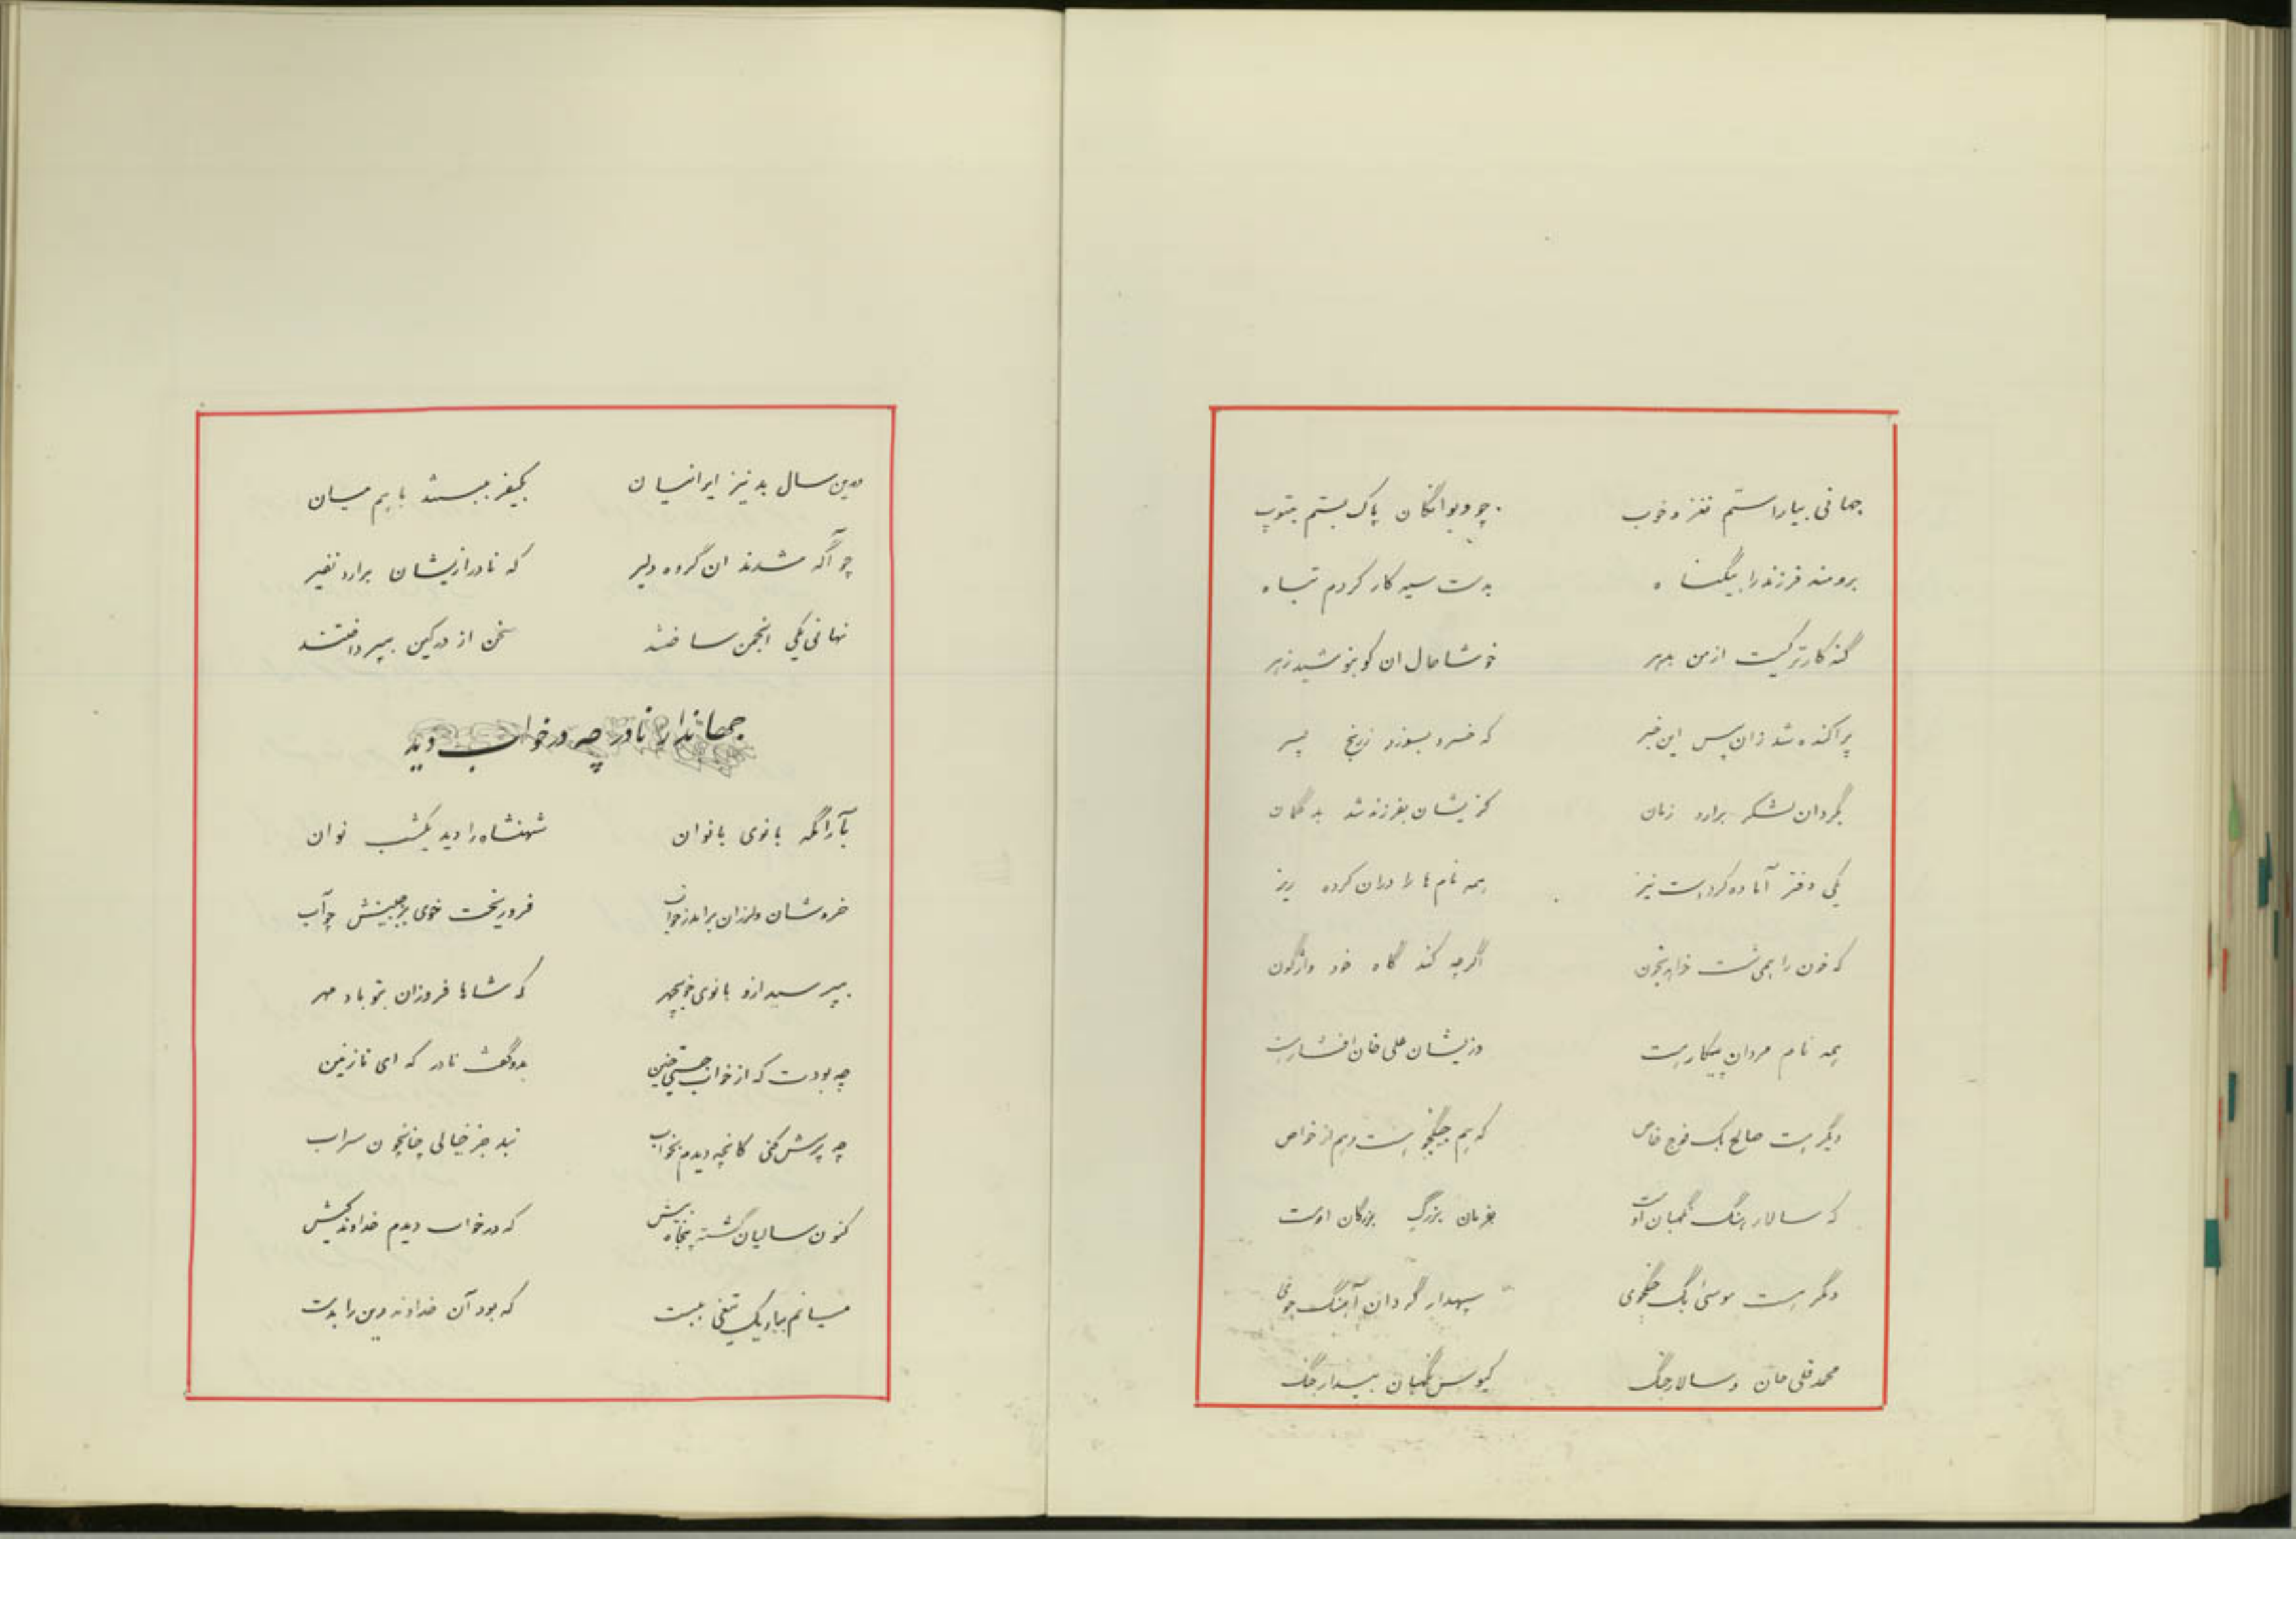 جهانی بیاراستم نغز و خوب چو دیوانگان پاک بستم بتوپ
برومند فرزند را بیگناه بدست سیه کار کردم تباه
گنه کارتر کیست از من بدهر خوشا حال ان کو بنوشید زهر
پراکنده شد زان پس این خبر که خسرو بسوزد ز رنج پسر
بگردان لشکر برارد زمان کزیشان بفرزند شد بدگمان
یکی دفتر آماده کردست نیز همه نام ها را دران کرده ریز
که خون را همی شست خواهد بخون اگرچه کند گاه خود واژگون
همه نام مردان پیکاریست وزیشان علی خان افشاریست
دیگر هست صالح بک فوج خاص که هم جنگجو هست و هم از خواص
که سالار هنگ نگهبان اوست بفرمان بزرگ بزرگان اوست
دگر هست موسی بگ جنگجوی سپهدار گردان آهنگ جوی
محمد قلی خان و سالار جنگ کیوس نگهبان بیدار جنگ
بدین سال بد نیز ایرانیان بکیفر ببستند باهم میان
چو آگه شدند ان گروه دلیر که نادر ازیشان برارد نفیر
نهانی یکی انجمن ساختند سخن از در کین بپرداختند
جهاندار نادر چه در خواب دید
بآرامگه بانوی بانوان شهنشاه را دید یکشب نوان
خروشان و لرزان برامد ز خواب فرو ریخت خوی بر جبینش چو آب
بپرسید ازو بانوی خوبچهر که شاها فروزان بتو باد مهر
چه بودت که از خواب جستی چنین بدو گفت نادر که ای نازنین
چه پرسش کنی کانچه دیدم بخواب نبد جز خیالی چنانچون سراب
کنون سالیان گشته پنجاه بیش که در خواب دیدم خداوند کیش
میانم بباریک تیغی ببست که بود آن خداوند دین را بدست